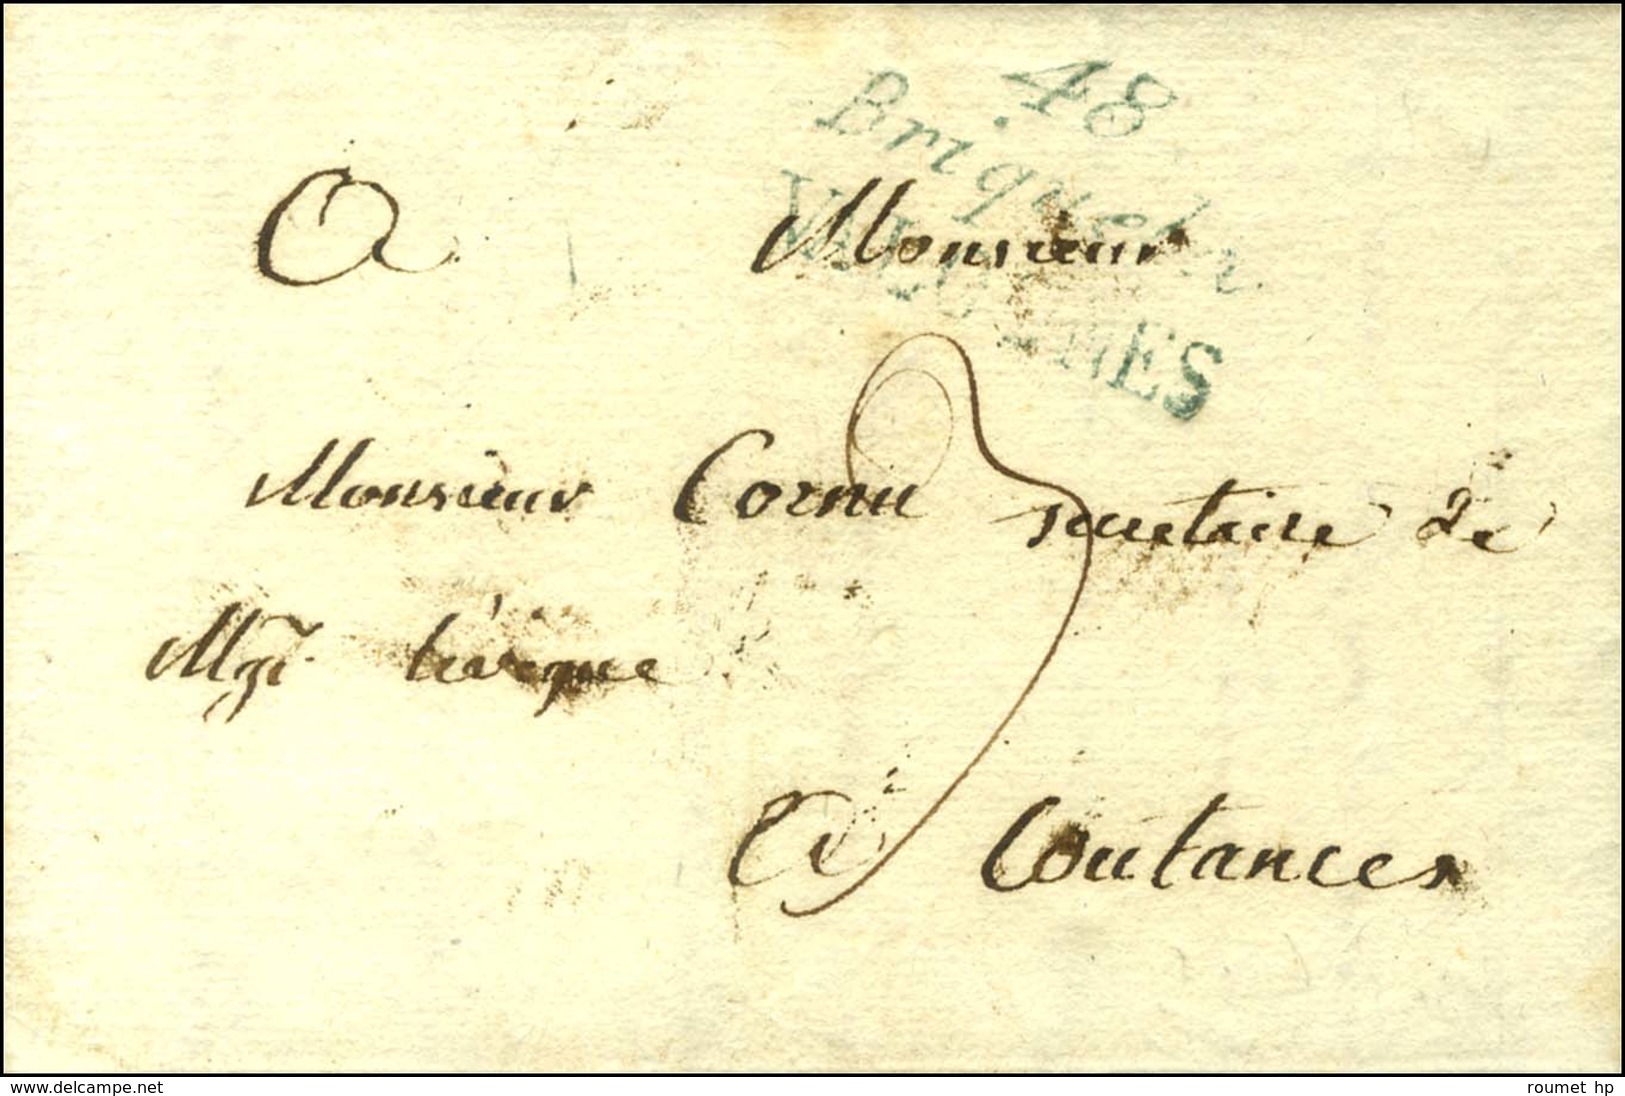 48
Briquebec
VALOGNES
A Monsieur
3
Monsieur Cornu secretaire de
Mgr l'évêque
à Coutances
www.delcampe.net
roumet hp